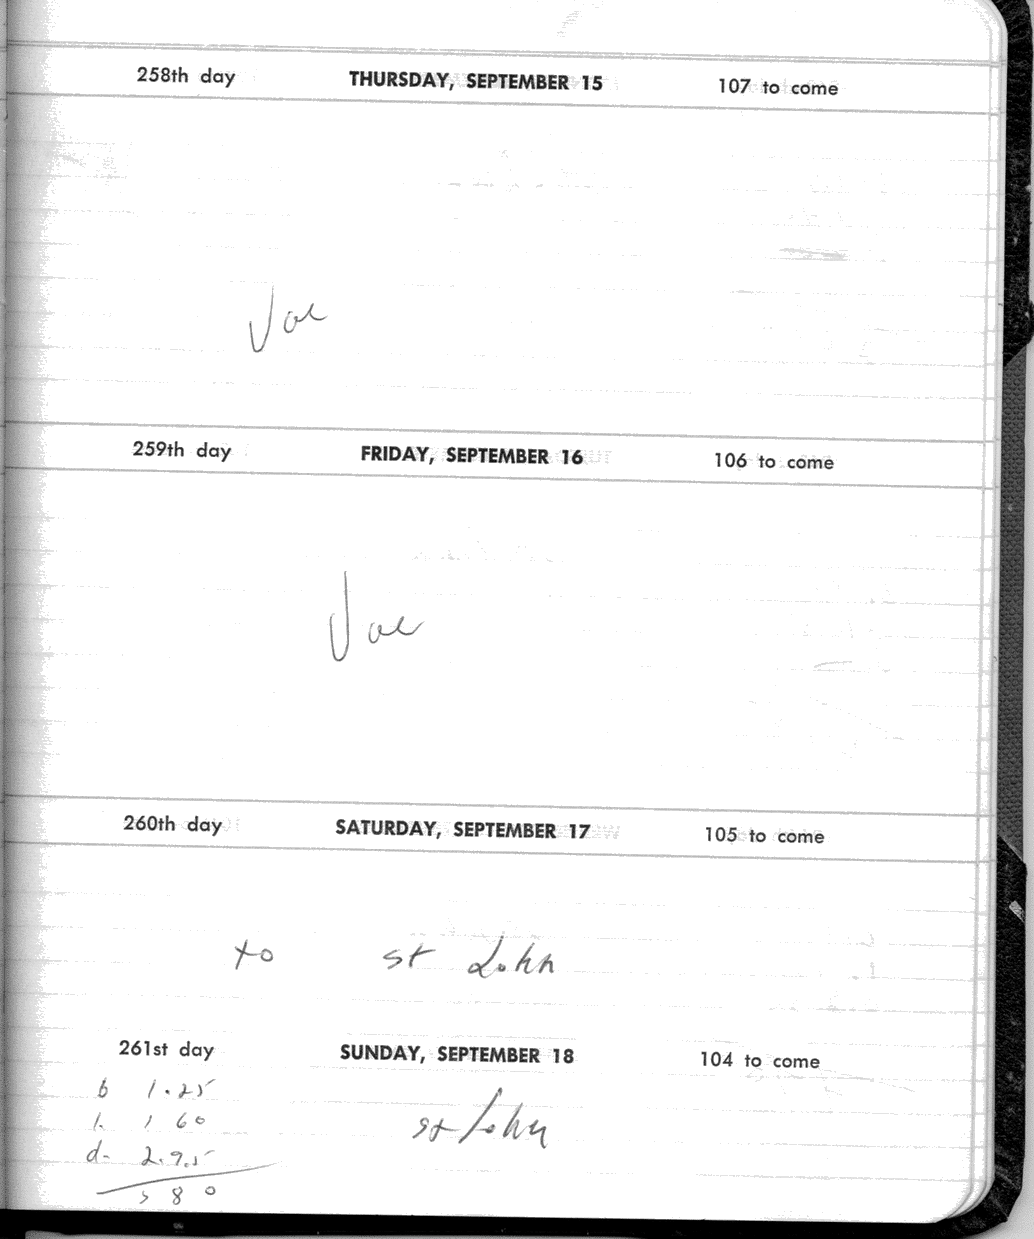 258th day THURSDAY, SEPTEMBER 15 107 to come
Vac
259th day FRIDAY, SEPTEMBER 16 106 to come
Vac
260th day SATURDAY, SEPTEMBER 17 105 to come
to st John
261st day SUNDAY, SEPTEMBER 18 104 to come
b 1.25
st John
l. 1 60
d- 2.95
5 80